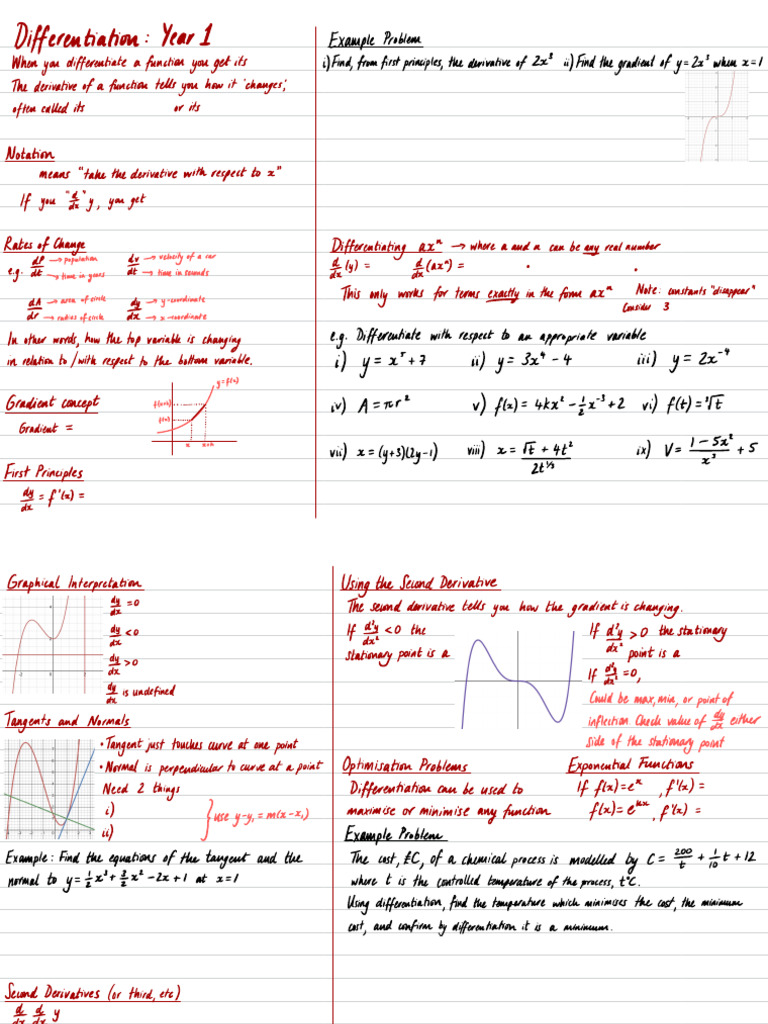 Differentiation: Year 1
When you differentiate a function you get its
The derivative of a function tells you how it 'changes',
often called its or its
Notation
means "take the derivative with respect to x"
If you "d/dx" y, you get
Rates of Change
e.g. dP/dt → population → time in years dv/dt → velocity of a car → time in seconds
dA/dr → area of circle → radius of circle dy/dx → y-coordinate → x-coordinate
In other words, how the top variable is changing
in relation to/with respect to the bottom variable.
Gradient concept
Gradient =
y=f(x)
f(x+h)
f(x)
x x+h
First Principles
dy/dx = f'(x) =
Example Problem
i) Find, from first principles, the derivative of 2x³ ii) Find the gradient of y=2x³ when x=1
Differentiating axⁿ → where a and n can be any real number
d/dx (y) = d/dx (axⁿ) =
This only works for terms exactly in the form axⁿ Note: constants "disappear"
Consider 3
e.g. Differentiate with respect to an appropriate variable
i) y = x⁵ + 7 ii) y = 3x⁴ - 4 iii) y = 2x⁻⁴
iv) A = πr² v) f(x) = 4kx² - 1/2 x⁻³ + 2 vi) f(t) = ³√t
vii) x = (y+3)(2y-1) viii) x = (√t + 4t²)/(2t^(1/3)) ix) V = (1 - 5x²)/x³ + 5
Graphical Interpretation
dy/dx = 0
dy/dx < 0
dy/dx > 0
dy/dx is undefined
Tangents and Normals
• Tangent just touches curve at one point
• Normal is perpendicular to curve at a point
Need 2 things
i)
ii)
} use y-y₁ = m(x-x₁)
Example: Find the equations of the tangent and the
normal to y = 1/2 x³ + 3/2 x² - 2x + 1 at x=1
Second Derivatives (or third, etc)
d/dx d/dx y
Using the Second Derivative
The second derivative tells you how the gradient is changing.
If d²y/dx² < 0 the
stationary point is a
If d²y/dx² > 0 the stationary
point is a
If d²y/dx² = 0,
Could be max, min, or point of
inflection Check value of dy/dx either
side of the stationary point
Optimisation Problems
Differentiation can be used to
maximise or minimise any function
Exponential Functions
If f(x) = eˣ , f'(x) =
f(x) = eᵏˣ , f'(x) =
Example Problem
The cost, £C, of a chemical process is modelled by C = 200/t + 1/10 t + 12
where t is the controlled temperature of the process, t°C.
Using differentiation, find the temperature which minimises the cost, the minimum
cost, and confirm by differentiation it is a minimum.